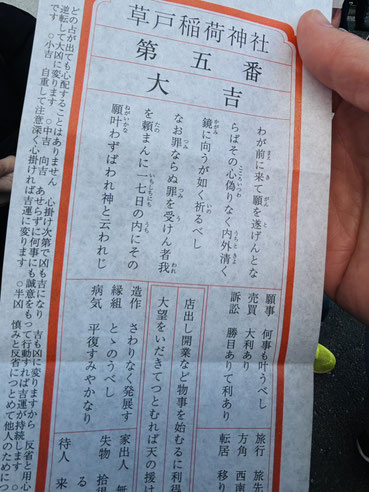 草戸稲荷神社
第五番
大吉
わが前に来て願を遂げんとな
らばその心偽りなく内外清く
鏡に向うが如く祈るべし
なお罪ならぬ罪を受けん者我
を頼まんに一七日の内にその
願叶わずばわれ神と云われじ
願事 何事も叶うべし
売買 大利あり
訴訟 勝目ありて利あり
旅行 旅先
方角 西南
転居 移り
店出し開業など物事を始むるに利得
大望をいだきてつとむれば天の援け
造作 さわりなく発展す
縁組 とゝのうべし
病気 平復すみやかなり
家出人
失物 拾
待人 来
どの占が出ても心配することはありません 心掛け次第で凶も吉になり 吉も凶に変りますから 反省と用心
逆転して大凶に変ります ○中吉 向吉 あせらずに何事にも誠意をもって行動すれば吉運が持続します ○
です ○小吉 自重して注意深く心掛ければ吉運に変ります ○半凶 慎みと反省につとめて他人のためにつ